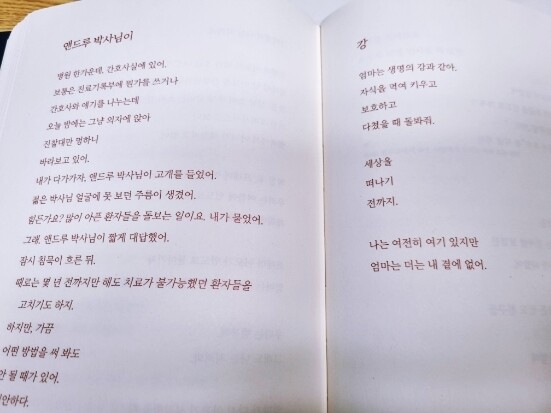 앤드루 박사님이
병원 한가운데, 간호사실에 있어.
보통은 진료기록부에 뭔가를 쓰거나
간호사와 얘기를 나누는데
오늘 밤에는 그냥 의자에 앉아
진찰대만 멍하니
바라보고 있어.
내가 다가가자, 앤드루 박사님이 고개를 들었어.
젊은 박사님 얼굴에 못 보던 주름이 생겼어.
힘든가요? 많이 아픈 환자들을 돌보는 일이요. 내가 물었어.
그래. 앤드루 박사님이 짧게 대답했어.
잠시 침묵이 흐른 뒤.
때로는 몇 년 전까지만 해도 치료가 불가능했던 환자들을
고치기도 하지.
하지만, 가끔
어떤 방법을 써 봐도
안 될 때가 있어.
강
엄마는 생명의 강과 같아.
자식을 먹여 키우고
보호하고
다쳤을 때 돌봐줘.
세상을
떠나기
전까지.
나는 여전히 여기 있지만
엄마는 더는 내 곁에 없어.